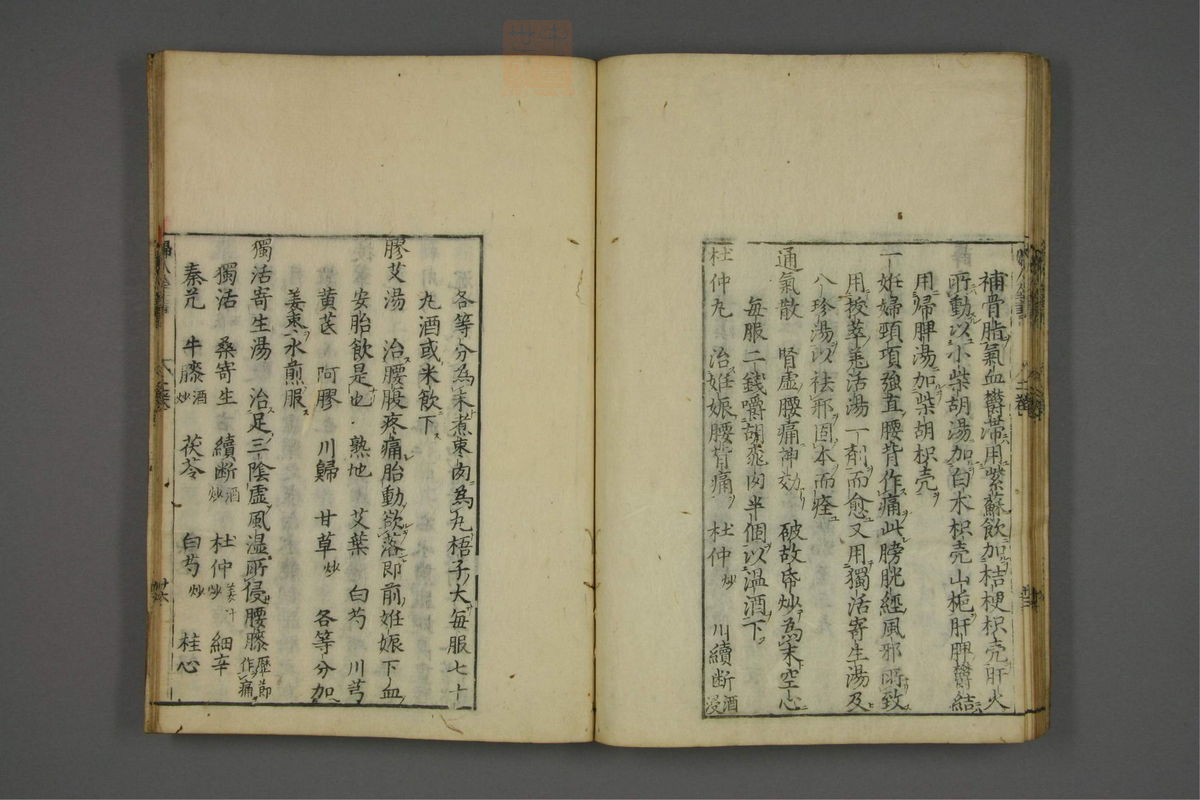 補骨脂氣血欝滯用紫蘇飲加桔梗枳壳肝火
所動以小柴胡湯加白朮枳壳山梔肝脾欝結
用歸脾湯加柴胡枳壳
一妊婦頸項強直腰背作痛此膀胱經風邪所致
用拔萃羗活湯一剤而愈又用獨活寄生湯及
八珍湯以祛邪固本而痊
通氣散 腎虛腰痛神効 破故帋炒為末空心
每服二錢嚼胡桃肉半個以温酒下
杜仲丸 治妊娠腰背痛 杜仲炒 川續断酒浸
各等分為末煮棗肉為丸梧子大每服七十
丸酒或米飲下
膠艾湯 治腰腹疼痛胎動欲落即前妊娠下血
安胎飲是也 熟地 艾葉 白芍 川芎
黄芪 阿膠 川歸 甘草炒 各等分加
姜棗水煎服
獨活寄生湯 治足三陰虛風濕所侵腰膝歷節作痛
獨活 桑寄生 續断酒炒 杜仲姜汁炒 細辛
秦艽 牛膝酒炒 茯苓 白芍炒 桂心